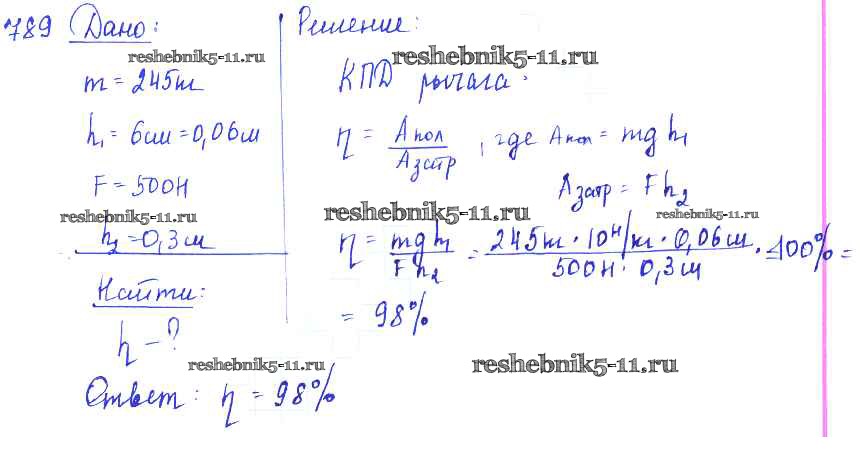 789 Дано:
reshebnik5-11.ru
m = 245кг
h₁ = 6см = 0,06м
F = 500Н
reshebnik5-11.ru
h₂ = 0,3м
Найти:
η - ?
Решение:
reshebnik5-11.ru
КПД рычага:
η = Aпол / Aзатр, где Aпол = mgh₁
Aзатр = Fh₂
reshebnik5-11.ru
reshebnik5-11.ru
η = mgh₁ / Fh₂ = 245кг · 10 Н/кг · 0,06м / 500Н · 0,3м · 100% =
= 98%
reshebnik5-11.ru
reshebnik5-11.ru
Ответ: η = 98%